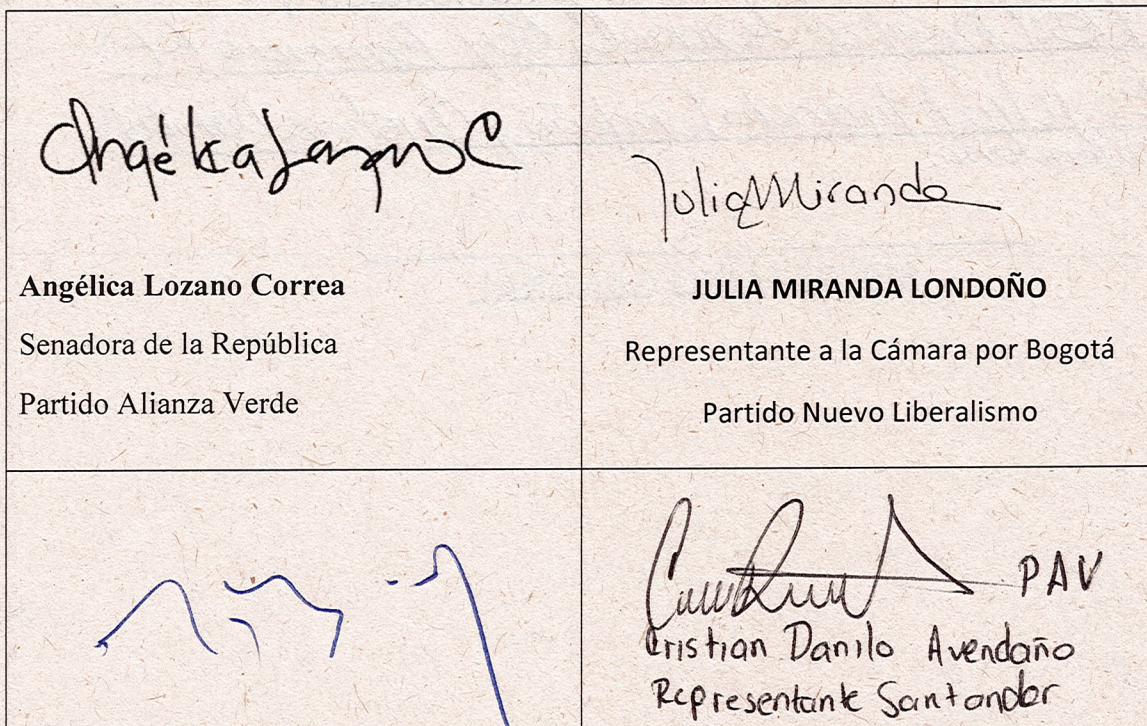 Angélica Lozano C
Angélica Lozano Correa
Senadora de la República
Partido Alianza Verde
Julia Miranda
JULIA MIRANDA LONDOÑO
Representante a la Cámara por Bogotá
Partido Nuevo Liberalismo
PAV
Cristian Danilo Avendaño
Representante Santander